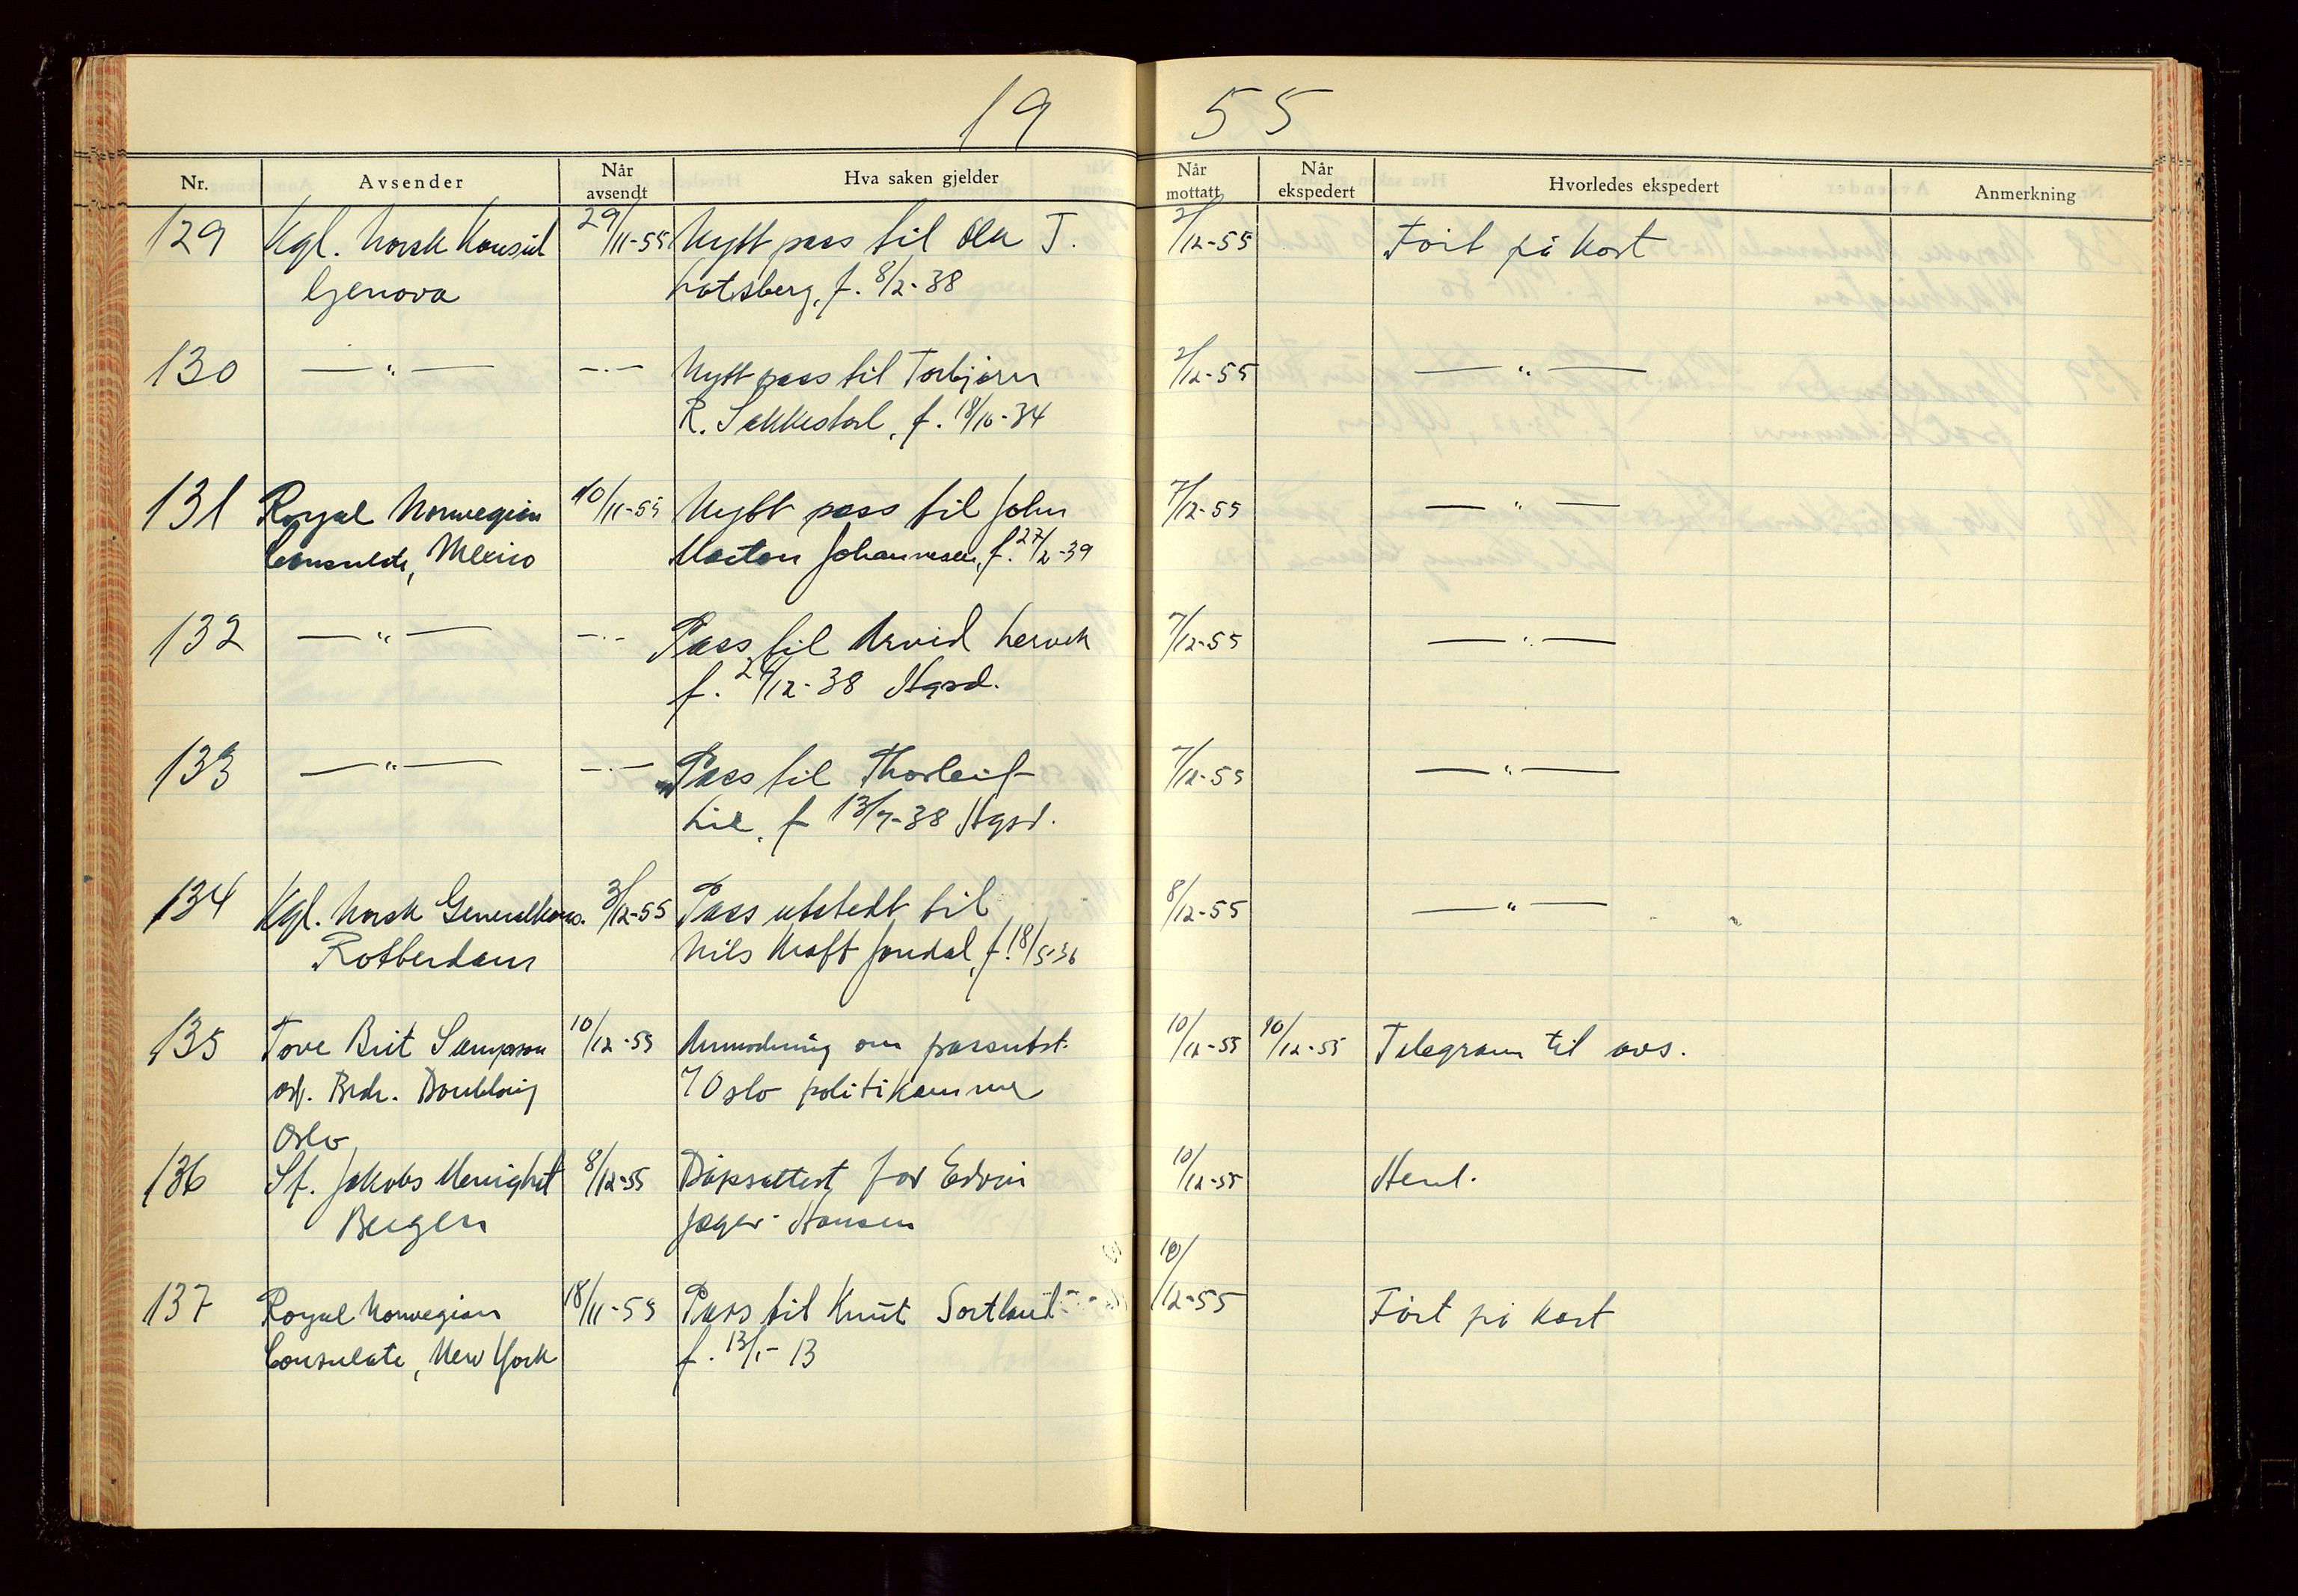 19 55
Nr. Avsender Når avsendt Hva saken gjelder Når mottatt Når ekspedert Hvorledes ekspedert Anmerkning
129 Kgl. Norsk Konsul 29/11-55 Nytt pass til Ola J. 2/12-55 Ført på kort
Genova Lotsberg, f. 8/2-38
130 — " — — " — Nytt pass til Torbjørn 2/12-55 — " —
R. Sekkestad, f. 18/10-34
131 Royal Norwegian 10/11-55 Nytt pass til John 7/12-55 — " —
Consulate, Mexico Morton Johannesen, f. 27/2-39
132 — " — — " — Pass til Arvid Lervik 7/12-55 — " —
f. 24/12-38 Hgsd.
133 — " — — " — Pass til Thorleif 7/12-55 — " —
Lie, f 13/7-38 Hgsd.
134 Kgl. Norsk Generalkons. 3/12-55 Pass utstedt til 8/12-55 — " —
Rotterdam Nils Kraft Jondal, f. 18/5-36
135 Tove Brit Sampson 10/12-55 Anmodning om passutst. 10/12-55 10/12-55 Telegram til avs.
Brdr. Oslo politikammer
Oslo
136 St. Jakobs Menighet 8/12-55 Dåpsattest for Edvin 10/12-55 Henl.
Bergen Jæger-Hansen
137 Royal Norwegian 18/11-55 Pass til Knut Sortland 10/12-55 Ført på kort
Consulate, New York f. 13/1-13